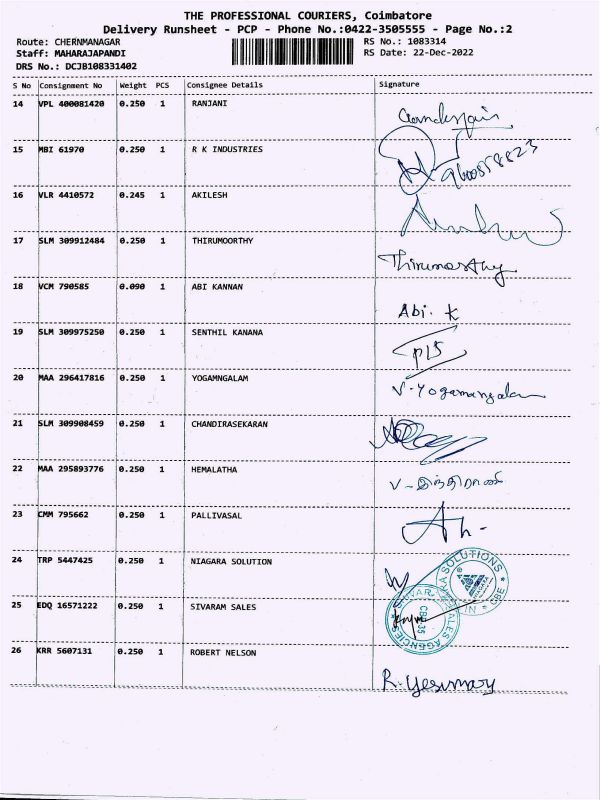 THE PROFESSIONAL COURIERS, Coimbatore
Delivery Runsheet - PCP - Phone No.:0422-3505555 - Page No.:2
Route: CHERNMANAGAR RS No.: 1083314
Staff: MAHARAJAPANDI RS Date: 22-Dec-2022
DRS No.: DCJB108331402
S No Consignment No Weight PCS Consignee Details Signature
14 VPL 400081420 0.250 1 RANJANI
15 MBI 61970 0.250 1 R K INDUSTRIES
16 VLR 4410572 0.245 1 AKILESH
17 SLM 309912484 0.250 1 THIRUMOORTHY
Thirumoorthy
18 VCM 790585 0.090 1 ABI KANNAN
Abi. K
19 SLM 309975250 0.250 1 SENTHIL KANANA
20 MAA 296417816 0.250 1 YOGAMNGALAM
V-Yogamangalam
21 SLM 309908459 0.250 1 CHANDIRASEKARAN
22 MAA 295893776 0.250 1 HEMALATHA
V-இந்திராணி
23 CMM 795662 0.250 1 PALLIVASAL
24 TRP 5447425 0.250 1 NIAGARA SOLUTION
25 EDQ 16571222 0.250 1 SIVARAM SALES
26 KRR 5607131 0.250 1 ROBERT NELSON